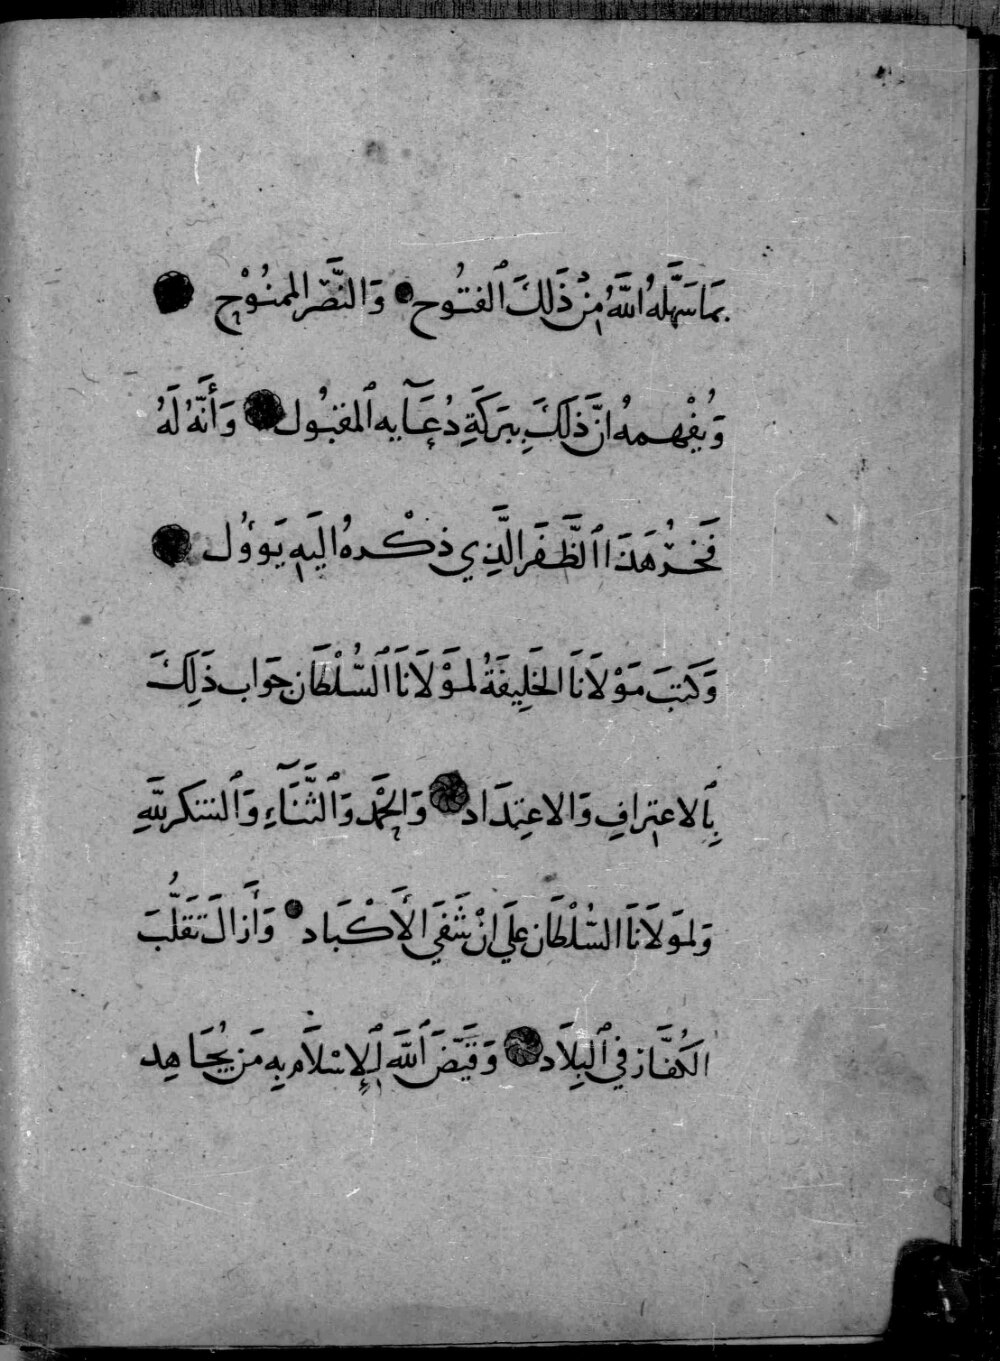 بِمَا سَهَّلَهُ اللَّهُ مِنْ ذَلِكَ الفتُوح وَالنَّصْرِ الممنُوْحِ
وَيُفْهِمهُ انَّ ذَلِكَ بِبَرَكَةِ دُعَآيِهِ المقبُول وَأَنَّهُ لَهُ
فَخْرُ هَذَا الظَّفَرِ الَّذِي ذكْرهُ اليَهِ يَوؤُل
وَكَتَبَ مَوْلَانَا الخَلِيفَةُ لمَوْلَانَا السُّلْطَانِ جَوَاب ذَلِكَ
بِالاعتِرافِ وَالاعتِدَاد وَالحَمْدِ وَالثَّنَآءِ وَالشكرِ لِلَّهِ
وَلمَولَانَا السُّلْطَان علَي انْ شَفَي الأَكْبَاد وَأَزَالَ تَقَلُّبَ
الكُفَّارِ فِي البِلَاد وَقَيَّضَ اللَّهَ لِلإسْلَامِ بِهِ مَن يُجَاهِد